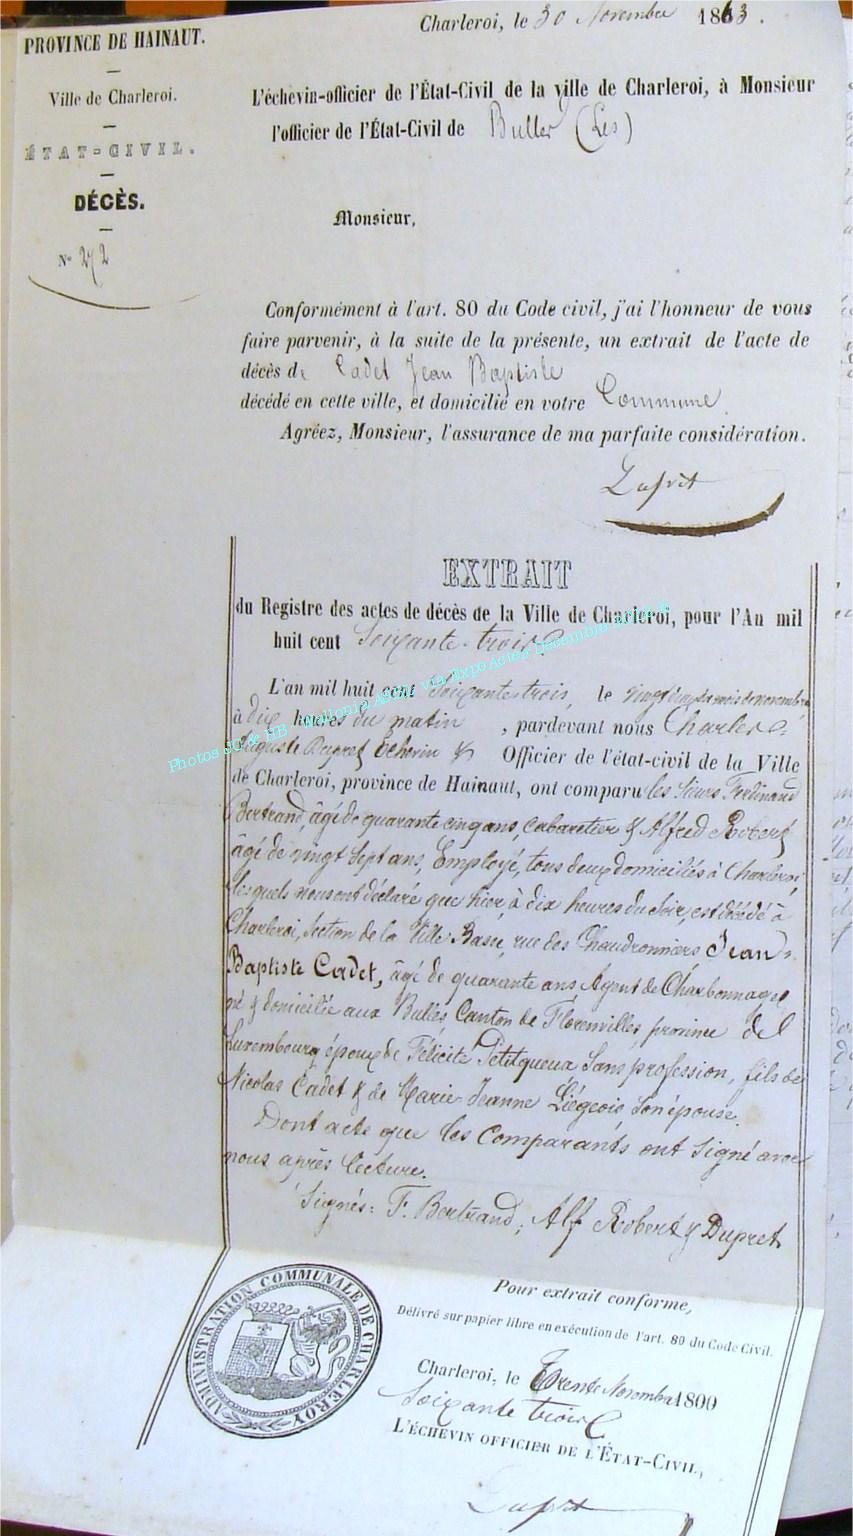 Charleroi, le 30 Novembre 1863.
PROVINCE DE HAINAUT.
Ville de Charleroi.
ÉTAT-CIVIL.
DÉCÈS.
N° 272
L'échevin-officier de l'État-Civil de la ville de Charleroi, à Monsieur
l'officier de l'État-Civil de Buller (Les)
Monsieur,
Conformément à l'art. 80 du Code civil, j'ai l'honneur de vous
faire parvenir, à la suite de la présente, un extrait de l'acte de
décès de Cadet Jean Baptiste
décédé en cette ville, et domicilié en votre Commune.
Agréez, Monsieur, l'assurance de ma parfaite considération.
Dupret
EXTRAIT
du Registre des actes de décès de la Ville de Charleroi, pour l'An mil
huit cent Soixante-trois
L'an mil huit cent Soixante trois, le vingt du mois de novembre
à dix heures du matin, pardevant nous Charles
Auguste Dupret Echevin & Officier de l'état-civil de la Ville
de Charleroi, province de Hainaut, ont comparu les Sieurs Ferdinand
Bertrand, âgé de quarante cinq ans, Cabaretier & Alfred Robert
âgé de vingt Sept ans, Employé, tous deux domiciliés à Charleroi,
lesquels nous ont déclaré que hier, à dix heures du Soir, est décédé à
Charleroi, Section de la Ville-Basse, rue des Chaudronniers Jean-
Baptiste Cadet, âgé de quarante ans Agent de Charbonnages,
né & domicilié aux Bulles Canton de Florenvilles province del
Luxembourg époux de Félicité Petitqueux Sans profession, fils de
Nicolas Cadet & de Marie-Jeanne Liégeois Son épouse.
Dont acte que les Comparants ont Signé avec
nous après lecture.
Signés: F. Bertrand, Alf Robert & Dupret
Pour extrait conforme,
Délivré sur papier libre en exécution de l'art. 80 du Code Civil.
Charleroi, le Trente Novembre 1800
Soixante trois
L'ÉCHEVIN OFFICIER DE L'ÉTAT-CIVIL,
Dupret
ADMINISTRATION COMMUNALE DE CHARLEROY
Photos JG & HB - Wallonia ASBL via Expo Actes Décembre